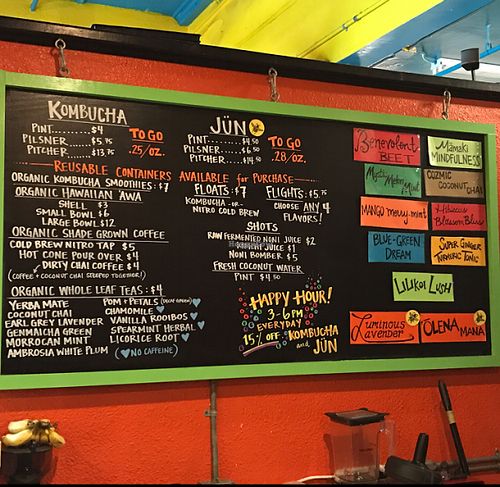 KOMBUCHA
PINT.........$4
PILSNER......$5.75
PITCHER......$13.75
TO GO
.25/oz.
JÜN
PINT.........$4.50
PILSNER......$6.50
PITCHER......$14.50
TO GO
.28/oz.
REUSABLE CONTAINERS AVAILABLE for PURCHASE
ORGANIC KOMBUCHA SMOOTHIES: $7
ORGANIC HAWAIIAN AWA
SHELL $3
SMALL BOWL $6
LARGE BOWL $12
ORGANIC SHADE GROWN COFFEE
COLD BREW NITRO TAP $5
HOT CONE POUR OVER $4
DIRTY CHAI COFFEE $4
(COFFEE + COCONUT CHAI STEEPED TOGETHER!)
ORGANIC WHOLE LEAF TEAS: $4
YERBA MATE
COCONUT CHAI
EARL GREY LAVENDER
GENMAICHA GREEN
MORROCAN MINT
AMBROSIA WHITE PLUM
POM + PETALS (DECAF GREEN)
CHAMOMILE
VANILLA ROOIBOS
SPEARMINT HERBAL
LICORICE ROOT
(NO CAFFEINE)
FLOATS: $7
KOMBUCHA -OR-
NITRO COLD BREW
FLIGHTS: $5.75
CHOOSE ANY 4
FLAVORS!
SHOTS
RAW FERMENTED NONI JUICE $2
JUICE $1
NONI BOMBER $5
FRESH COCONUT WATER
PINT $4.50
HAPPY HOUR!
3-6PM
EVERYDAY
15% OFF KOMBUCHA
AND JÜN
Benevolent
BEET
Māmaki
MINDFULNESS
Mystic Melon Mint
COZMIC
COCONUT CHAI
MANGO merry-mint
Hibiscus
Blossom Bliss
BLUE-GREEN
DREAM
SUPER GINGER
TURMERIC TONIC
LILIKOI LUSH
Luminous
Lavender
ʻŌLENA
MANA